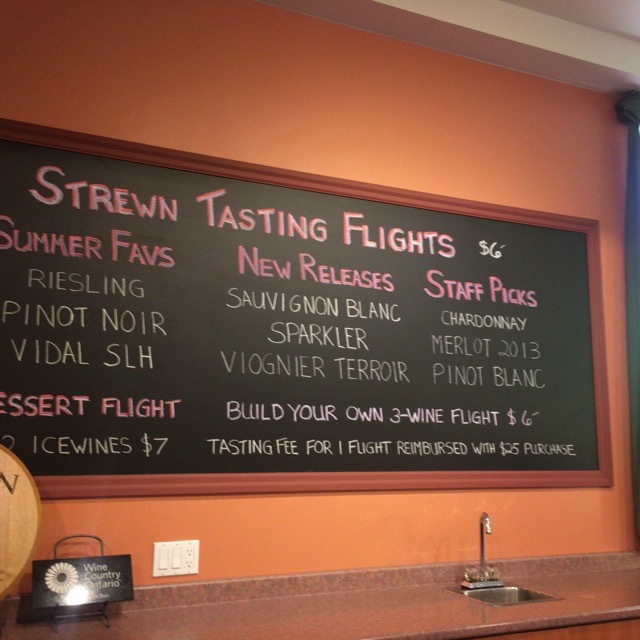 STREWN TASTING FLIGHTS $6
SUMMER FAVS
RIESLING
PINOT NOIR
VIDAL SLH
NEW RELEASES
SAUVIGNON BLANC
SPARKLER
VIOGNIER TERROIR
STAFF PICKS
CHARDONNAY
MERLOT 2013
PINOT BLANC
ESSERT FLIGHT
2 ICEWINES $7
BUILD YOUR OWN 3-WINE FLIGHT $6
TASTING FEE FOR 1 FLIGHT REIMBURSED WITH $25 PURCHASE
W
Wine
Country
Ontario